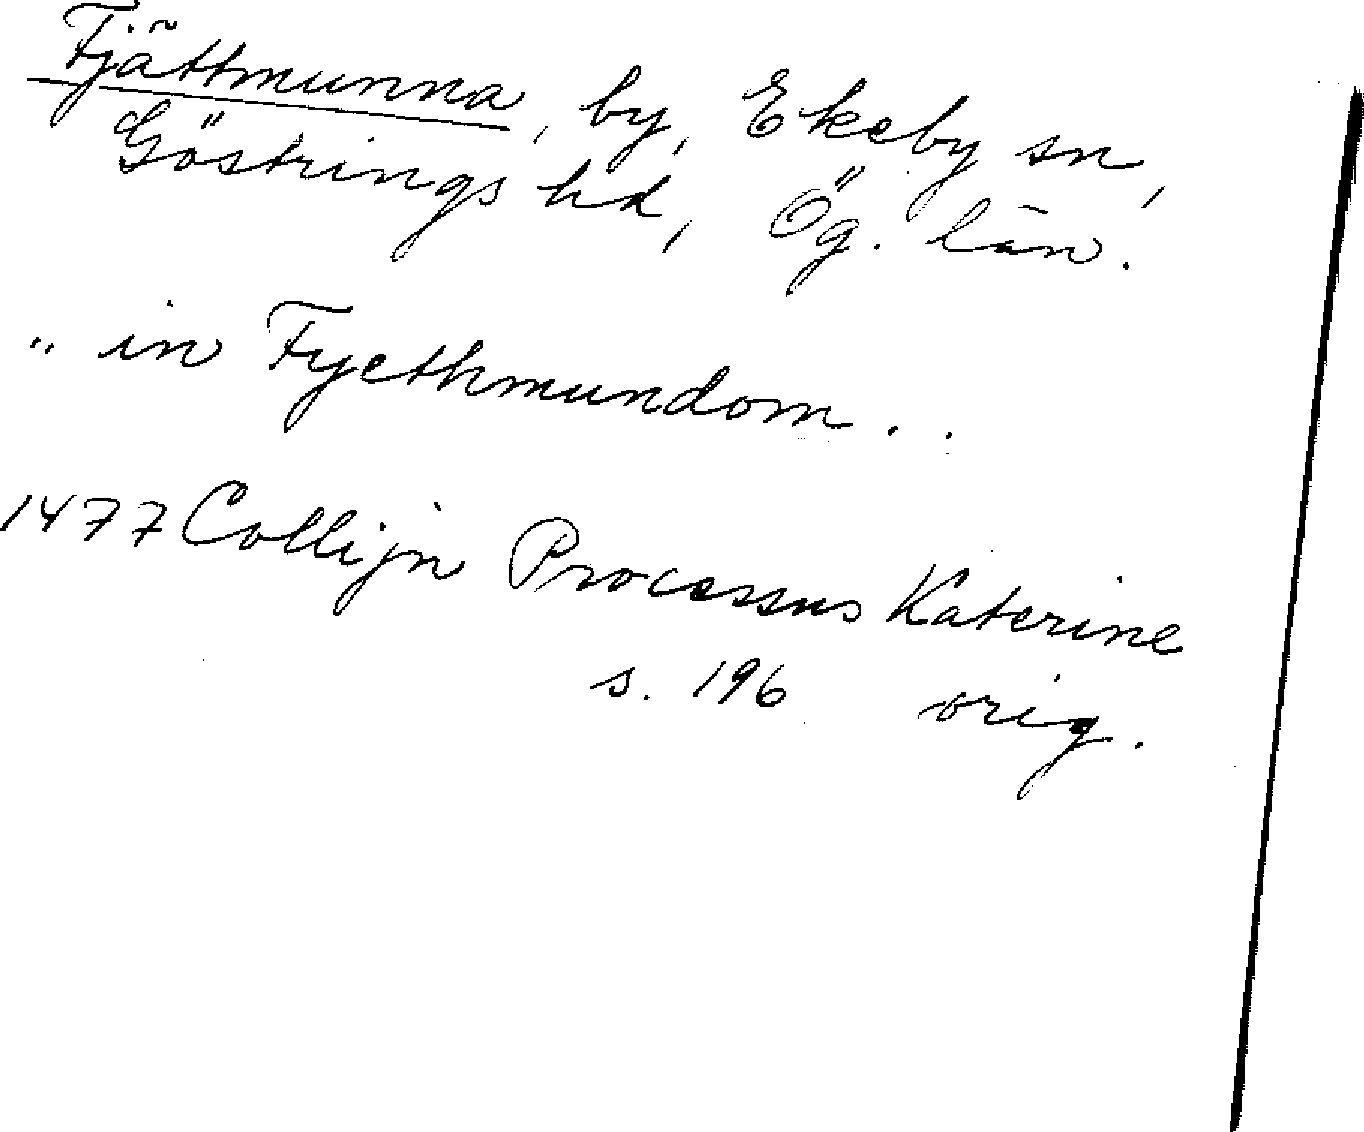 Fjättmunna, by, Ekeby sn,
Göstrings hd, Ög. län.
.. in Fyethmundom..
1477 Collijn Processus Katerine
s. 196 orig.